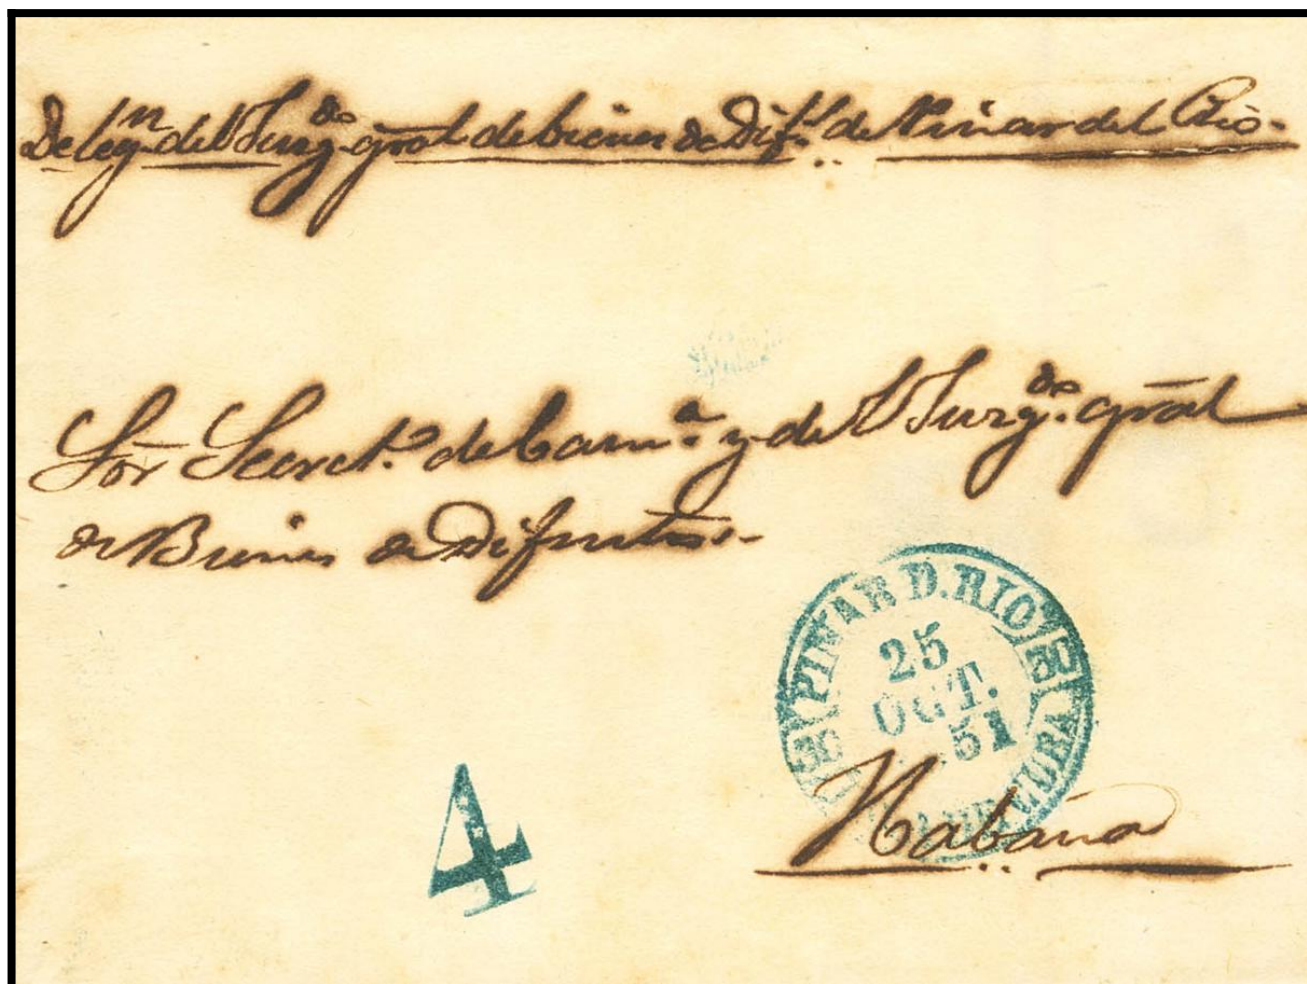 Delegn. del Juzgdo. gral de bienes de Dif.s de Pinar del Rio.
Sor Secret.o de Cam.a y del Juzgdo. gral
de Bienes de Difuntos.
PINAR D. RIO
25
OCT.
51
CUBA
Habana
4